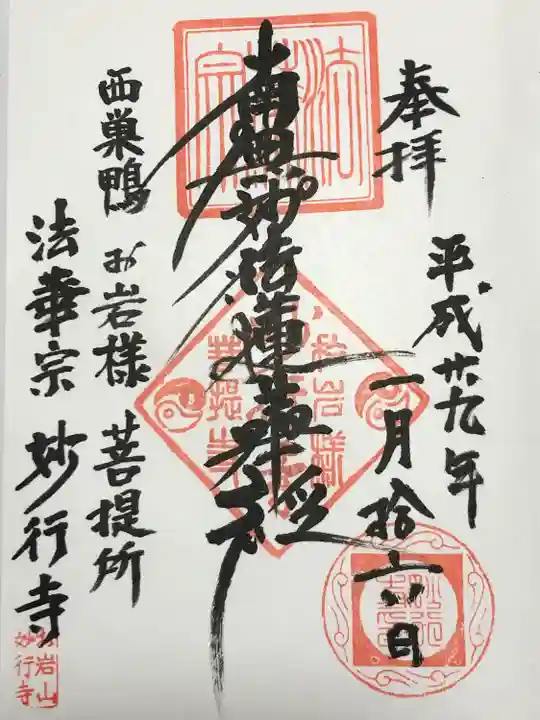 奉拝
平成廿九年
一月拾六日
南無妙法蓮華経
西巣鴨 お岩様 菩提所
法華宗 妙行寺
法華宗
お岩様
菩提寺
長徳山
妙行寺